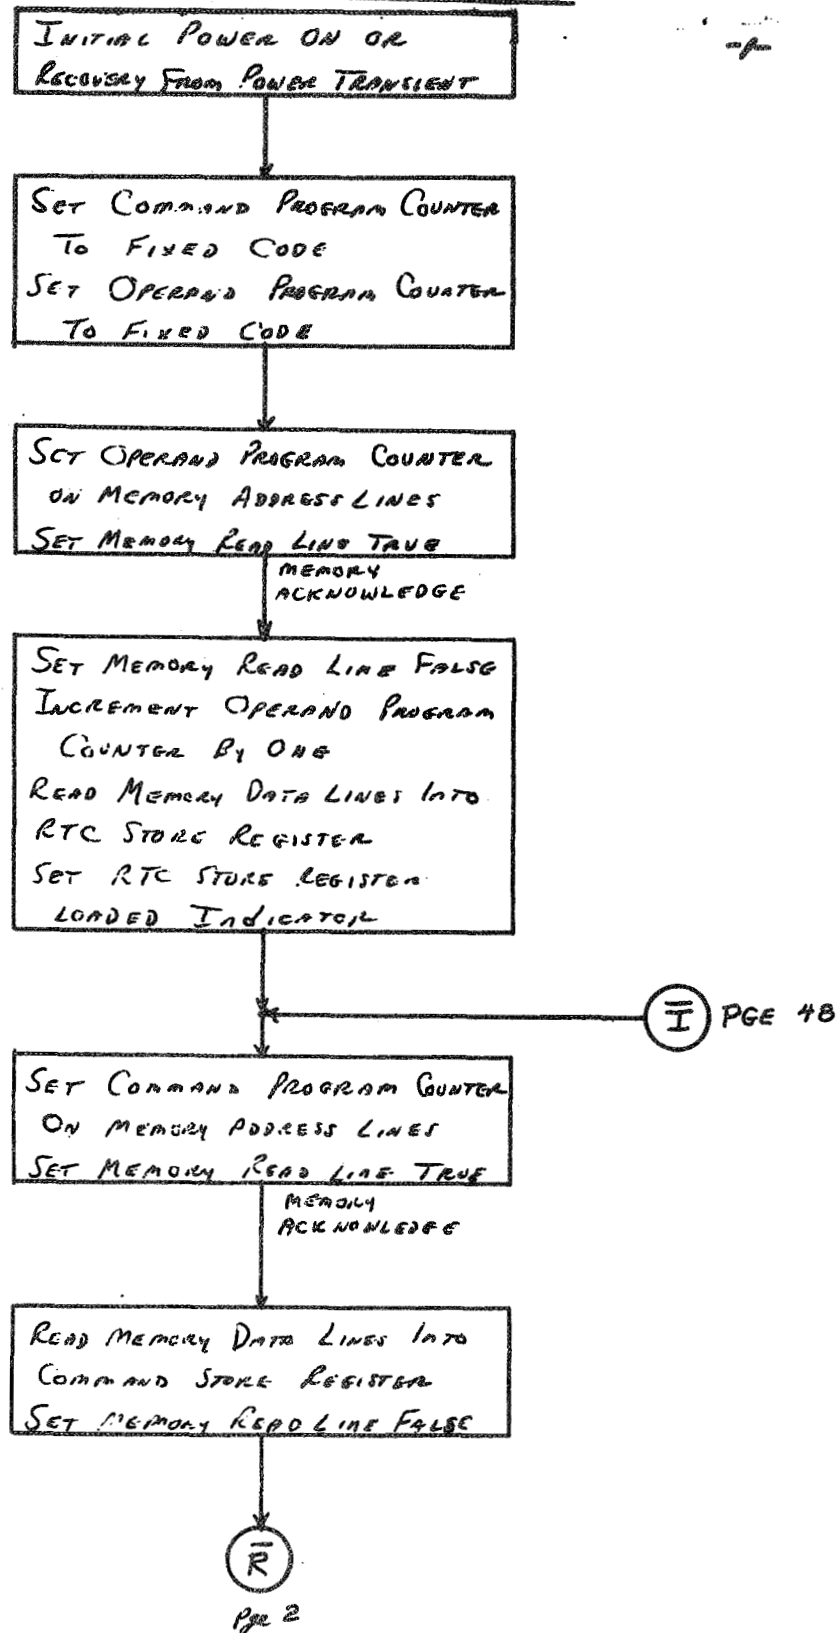 INITIAL POWER ON OR
RECOVERY FROM POWER TRANSIENT
SET COMMAND PROGRAM COUNTER
TO FIXED CODE
SET OPERAND PROGRAM COUNTER
TO FIXED CODE
SET OPERAND PROGRAM COUNTER
ON MEMORY ADDRESS LINES
SET MEMORY READ LINE TRUE
MEMORY
ACKNOWLEDGE
SET MEMORY READ LINE FALSE
INCREMENT OPERAND PROGRAM
COUNTER BY ONE
READ MEMORY DATA LINES INTO
RTC STORE REGISTER
SET RTC STORE REGISTER
LOADED INDICATOR
I PGE 48
SET COMMAND PROGRAM COUNTER
ON MEMORY ADDRESS LINES
SET MEMORY READ LINE TRUE
MEMORY
ACKNOWLEDGE
READ MEMORY DATA LINES INTO
COMMAND STORE REGISTER
SET MEMORY READ LINE FALSE
R
Pge 2